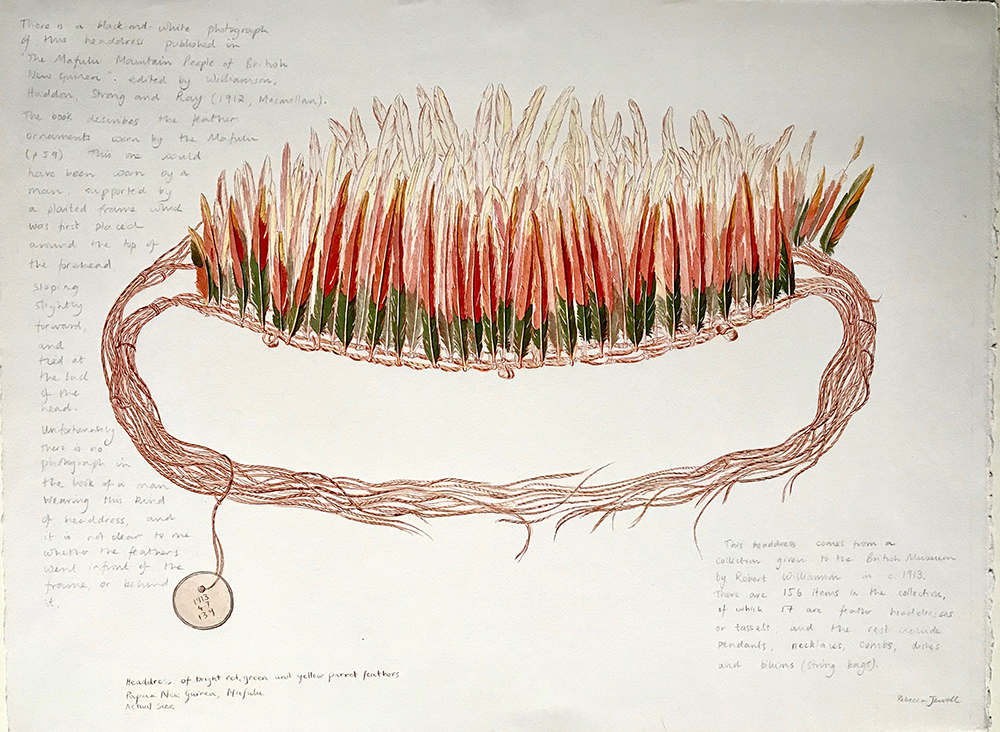 There is a black and white photograph
of this headdress published in
"The Mafulu Mountain People of British
New Guinea". edited by Williamson,
Haddon, Strong and Ray (1912, Macmillan).
The book describes the feather
ornaments worn by the Mafulu
(p 59). This one would
have been worn by a
man, supported by
a plaited frame which
was first placed
around the top of
the forehead
sloping
slightly
forward,
and
tied at
the back
of the
head.
Unfortunately
there is no
photograph in
the book of a man
wearing this kind
of headdress, and
it is not clear to me
whether the feathers
went infront of the
frame, or behind
it.
1913
4-7
134
This headdress comes from a
collection given to the British Museum
by Robert Williamson in c. 1913.
There are 156 items in the collection,
of which 17 are feather headdresses
or tassels, and the rest include
pendants, necklaces, combs, dishes
and bilums (string bags).
Headdress of bright red, green and yellow parrot feathers
Papua New Guinea, Mafulu
Actual size
Rebecca Jewell